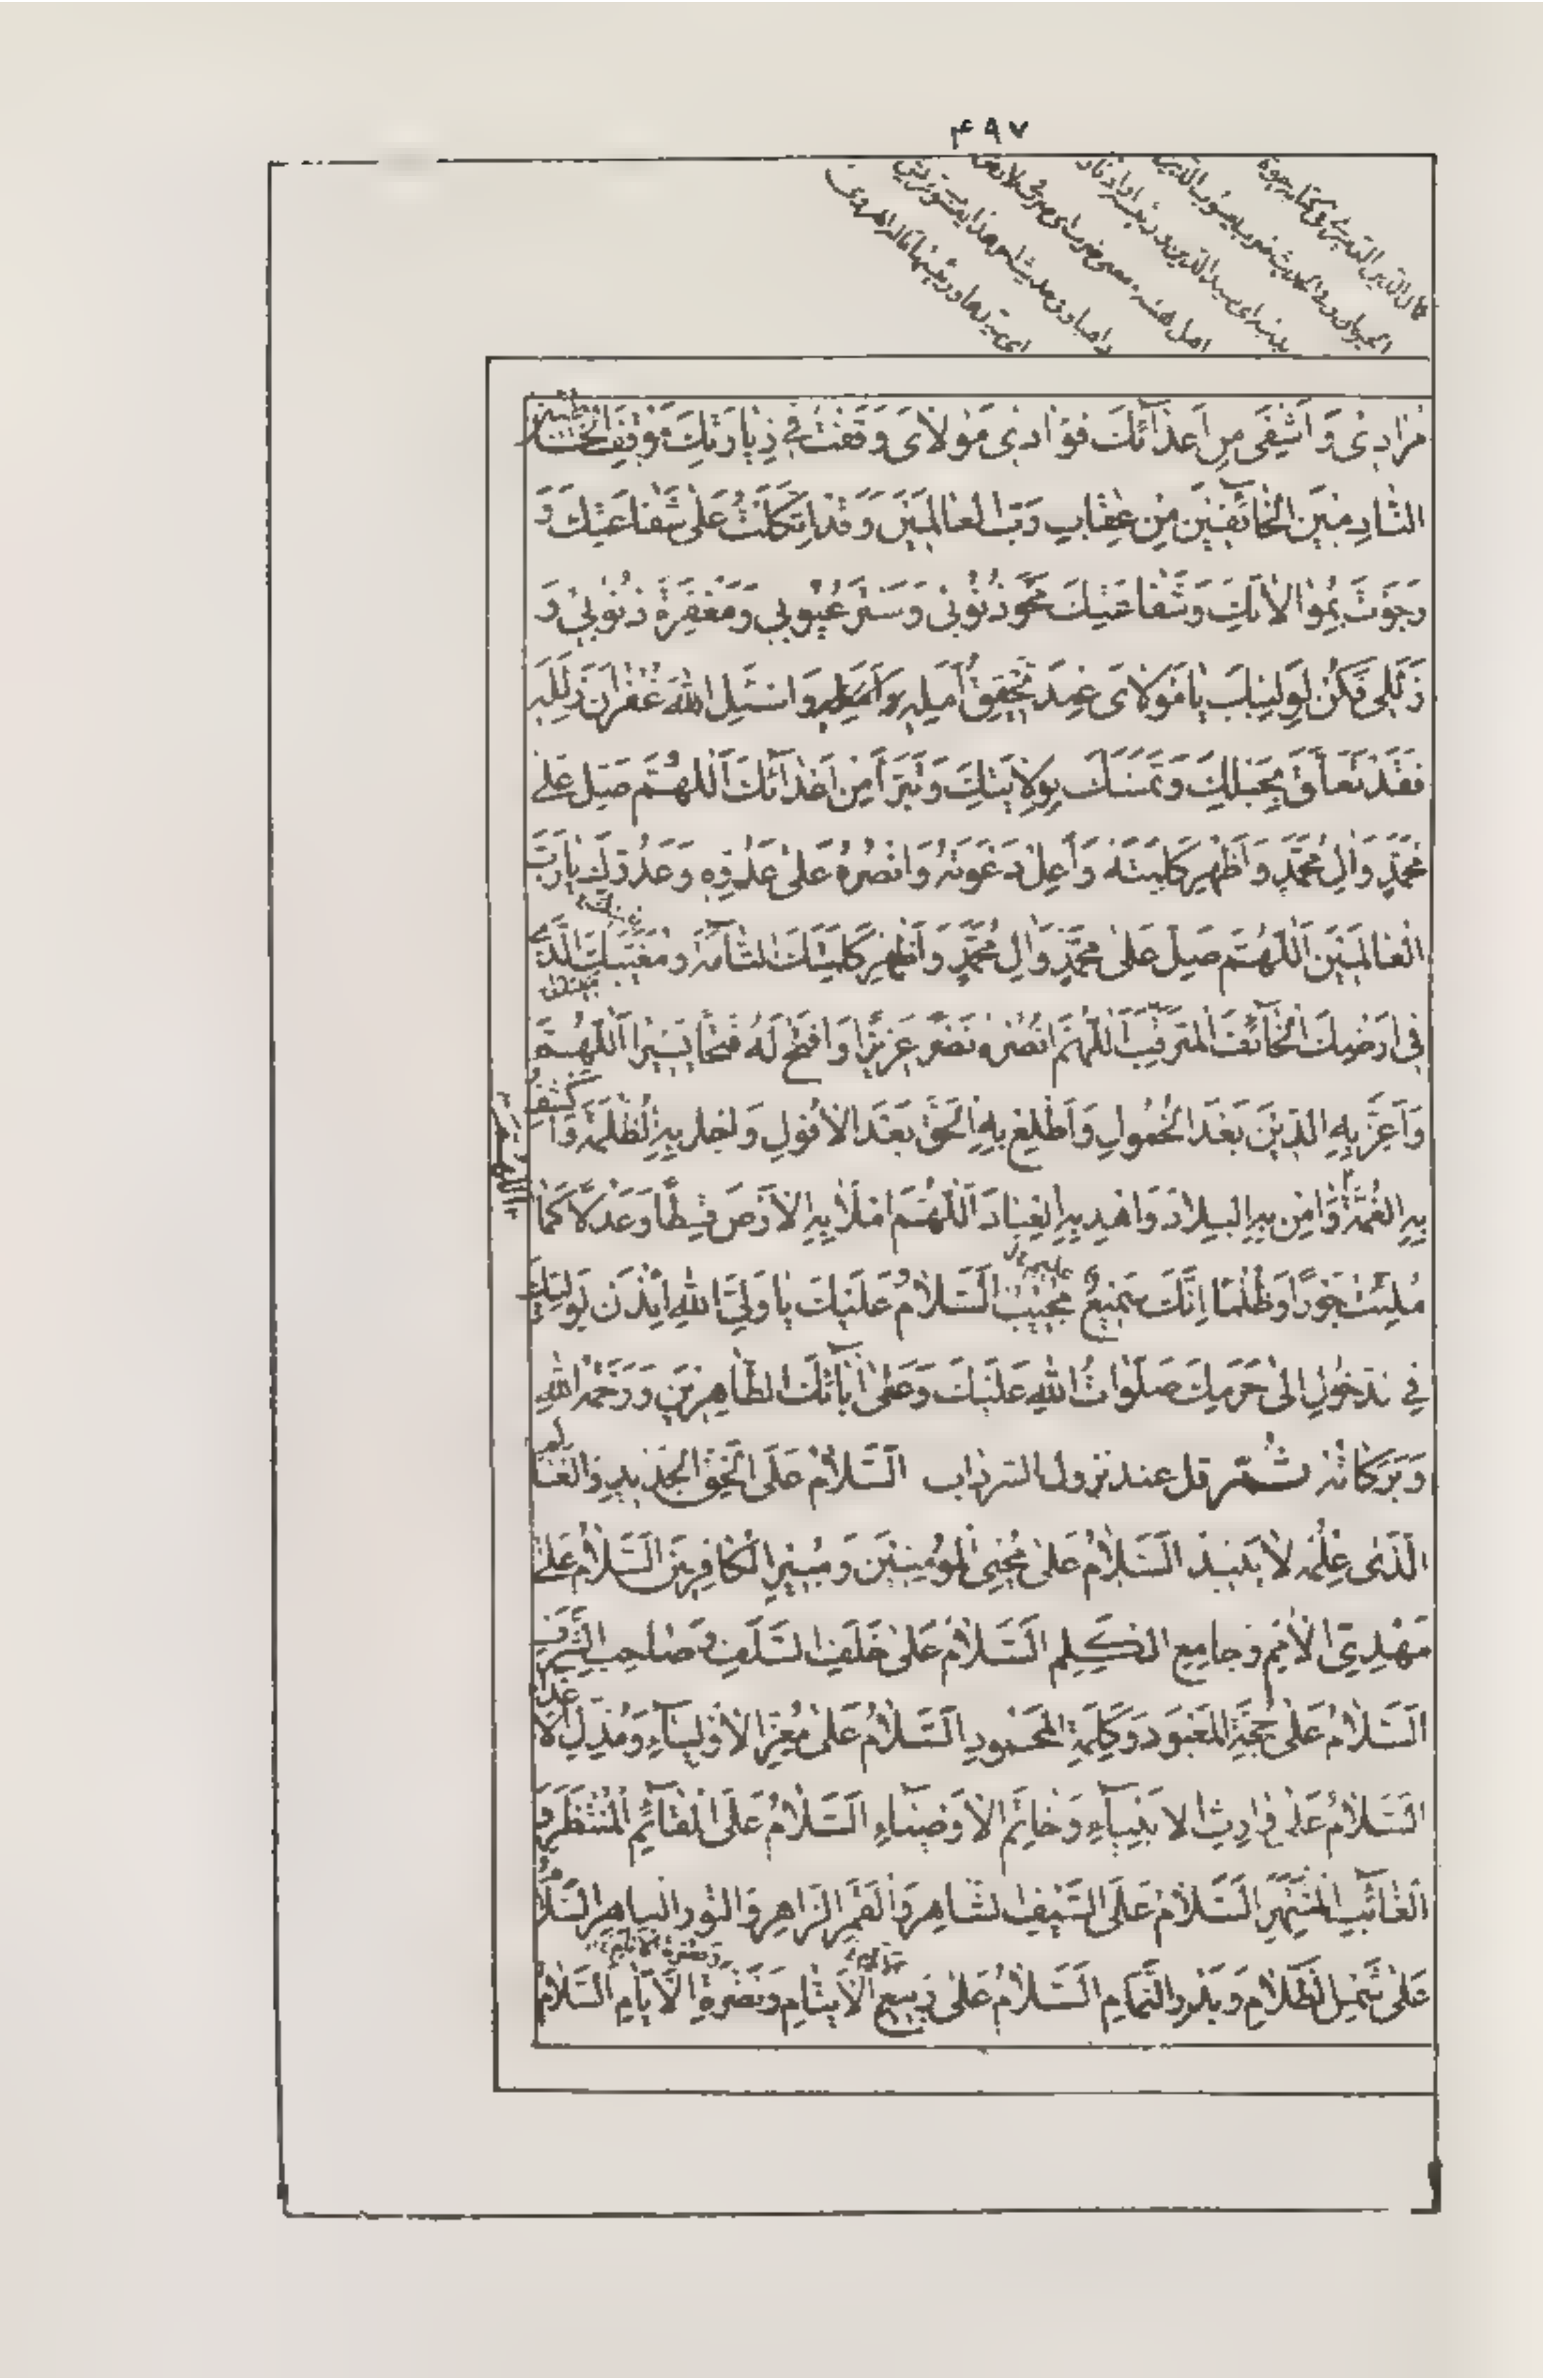 ۴۹۷
مُرَادِی وَ اَشْفِیَ مِن اَعْدَآئِكَ فُؤَادِی مَوْلَایَ وَقَفْتُ فِی زِیَارَتِكَ مَوْقِفَ الْخَاطِئِینَ
النَّادِمِینَ الْخَآئِفِینَ مِنْ عِقَابِ رَبِّ الْعَالَمِینَ وَ قَدِ اتَّكَلْتُ عَلٰی شَفَاعَتِكَ وَ
رَجَوْتُ بِمُوَالَاتِكَ وَ شَفَاعَتِكَ مَحْوَ ذُنُوبِی وَ سَتْرَ عُیُوبِی وَ مَغْفِرَةَ ذُنُوبِی وَ
زَلَلِی فَكُنْ لِوَلِیِّكَ یَا مَوْلَایَ عِنْدَ تَحْقِیقِ اَمَلِهِ وَ اسْئَلِ اللّٰهَ غُفْرَانَ زَلَلِهِ
فَقَدْ تَعَلَّقَ بِحَبْلِكَ وَ تَمَسَّكَ بِوِلَایَتِكَ وَ تَبَرَّأَ مِنْ اَعْدَآئِكَ اَللّٰهُمَّ صَلِّ عَلٰی
مُحَمَّدٍ وَ اٰلِ مُحَمَّدٍ وَ اَظْهِرْ كَلِمَتَهُ وَ اَعْلِ دَعْوَتَهُ وَ انْصُرْهُ عَلٰی عَدُوِّهِ وَ عَدُوِّكَ یَا رَبَّ
الْعَالَمِینَ اَللّٰهُمَّ صَلِّ عَلٰی مُحَمَّدٍ وَ اٰلِ مُحَمَّدٍ وَ اَظْهِرْ كَلِمَتَكَ التَّآمَّةَ وَ مُغَیَّبَكَ
فِی اَرْضِكَ الْخَآئِفَ الْمُتَرَقِّبَ اَللّٰهُمَّ انْصُرْهُ نَصْرًا عَزِیزًا وَ افْتَحْ لَهُ فَتْحًا یَسِیرًا اَللّٰهُمَّ
وَ اَعِزَّ بِهِ الدِّینَ بَعْدَ الْخُمُولِ وَ اَطْلِعْ بِهِ الْحَقَّ بَعْدَ الْاُفُولِ وَ اجْلُ بِهِ الظُّلْمَةَ وَ اكْشِفْ
بِهِ الْغُمَّةَ وَ اٰمِنْ بِهِ الْبِلَادَ وَ اهْدِ بِهِ الْعِبَادَ اَللّٰهُمَّ امْلَأْ بِهِ الْاَرْضَ قِسْطًا وَ عَدْلًا كَمَا
مُلِئَتْ جَوْرًا وَ ظُلْمًا اِنَّكَ سَمِیعٌ مُجِیبٌ اَلسَّلَامُ عَلَیْكَ یَا وَلِیَّ اللّٰهِ اِیْذَنْ لِوَلِیِّكَ
فِی تدخولِ اِلٰی حَرَمِكَ صَلَوَاتُ اللّٰهِ عَلَیْكَ وَ عَلٰی اٰبَآئِكَ الطَّاهِرِینَ وَ رَحْمَةُ اللّٰهِ
وَ بَرَكَاتُهُ ثُمَّ قل عند نزول السرداب اَلسَّلَامُ عَلَی الْحَقِّ الْجَدِیدِ وَ الْعَالِمِ
الَّذِی عِلْمُهُ لَا یَبِیدُ اَلسَّلَامُ عَلٰی مُحْیِی الْمُؤْمِنِینَ وَ مُبِیرِ الْكَافِرِینَ اَلسَّلَامُ عَلٰی
مَهْدِیِّ الْاُمَمِ وَ جَامِعِ الْكَلِمِ اَلسَّلَامُ عَلٰی خَلَفِ السَّلَفِ وَ صَاحِبِ الشَّرَفِ
اَلسَّلَامُ عَلٰی حُجَّةِ الْمَعْبُودِ وَ كَلِمَةِ الْمَحْمُودِ اَلسَّلَامُ عَلٰی مُعِزِّ الْاَوْلِیَآءِ وَ مُذِلِّ الْاَعْدَا
اَلسَّلَامُ عَلٰی وَارِثِ الْاَنْبِیَآءِ وَ خَاتِمِ الْاَوْصِیَآءِ اَلسَّلَامُ عَلَی الْقَآئِمِ الْمُنْتَظَرِ وَ
الْغَآئِبِ الْمُشْتَهَرِ اَلسَّلَامُ عَلَی السَّیْفِ الشَّاهِرِ وَ الْقَمَرِ الزَّاهِرِ وَ النُّورِ الْبَاهِرِ اَلسَّلَامُ
عَلٰی شَمْسِ الظَّلَامِ وَ بَدْرِ التَّمَامِ اَلسَّلَامُ عَلٰی رَبِیعِ الْاَیْتَامِ وَ نَضْرَةِ الْاَیَّامِ اَلسَّلَامُ